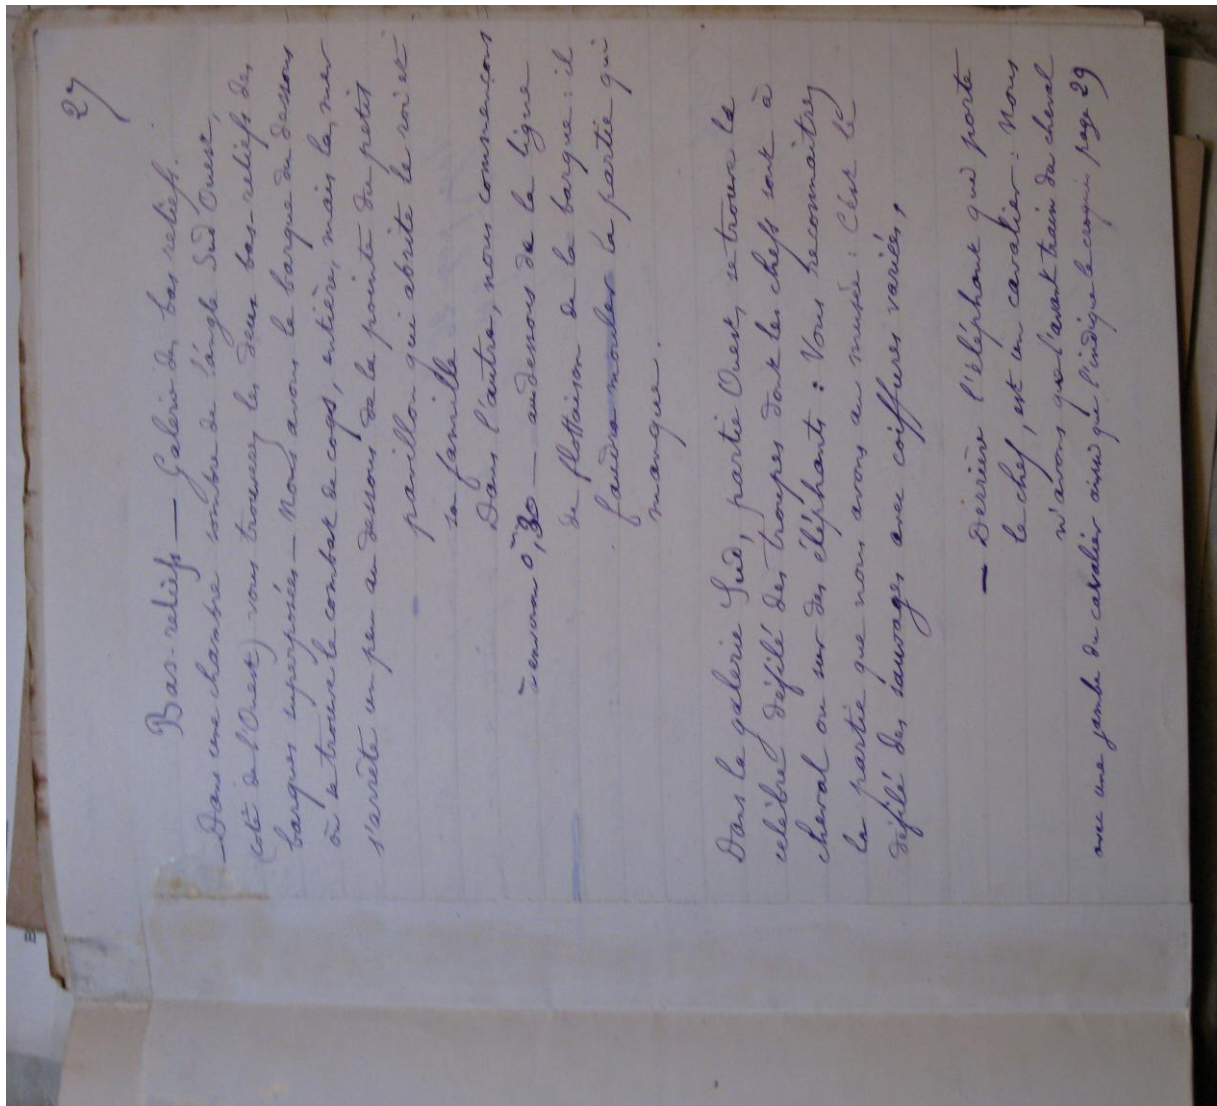 27
Bas-reliefs — Galerie des bas reliefs.
— Dans une chambre sombre de l'angle Sud Ouest,
(côté de l'Ouest) vous trouverez les deux bas-reliefs des
barques superposées — Nous avons la barque du dessous
où se trouve le combat de coqs, entière, mais la mer
s'arrête un peu au dessous de la pointe du petit
pavillon qui abrite le roi et
sa famille
Dans l'autre, nous commençons
à environ 0,30 — au dessous de la ligne
de flottaison de la barque : il
faudra mouler la partie qui
manque.
Dans la galerie Sud, partie Ouest, se trouve le
célèbre défilé des troupes dont les chefs sont à
cheval ou sur des éléphants : Vous reconnaitrez
la partie que nous avons au musée : C'est le
défilé des sauvages avec coiffures variées,
— Derrière l'éléphant qui porte
le chef, est un cavalier : Nous
n'avons que l'avant train du cheval
avec une jambe du cavalier ainsi que l'indique le croquis page 29